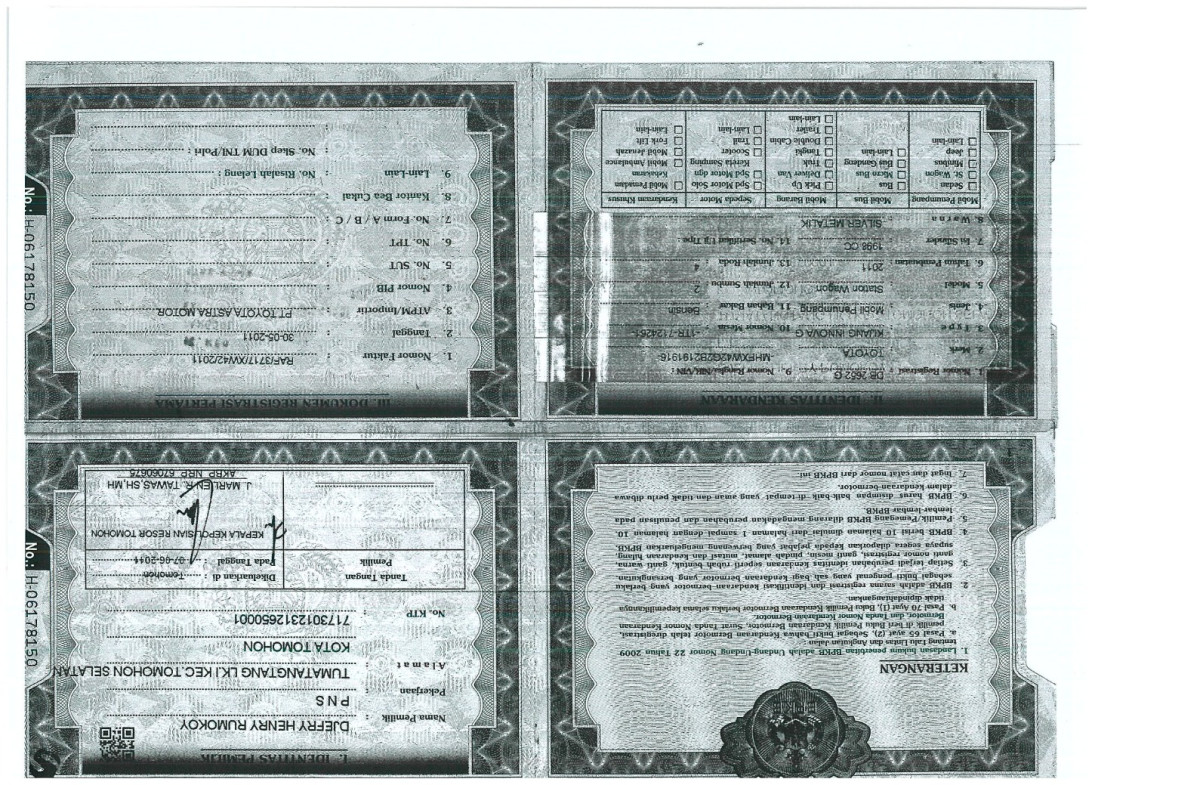 KETERANGAN
1. Landasan hukum penerbitan BPKB adalah Undang-Undang Nomor 22 Tahun 2009
tentang Lalu Lintas dan Angkutan Jalan :
a. Pasal 65 ayat (2), Sebagai bukti bahwa Kendaraan Bermotor telah diregistrasi,
pemilik di beri Buku Pemilik Kendaraan Bermotor, Surat Tanda Nomor Kendaraan
Bermotor, dan Tanda Nomor Kendaraan Bermotor.
b. Pasal 70 Ayat (1), Buku Pemilik Kendaraan Bermotor berlaku selama kepemilikannya
tidak dipindahtangankan.
2. BPKB adalah sarana registrasi dan identifikasi kendaraan-bermotor yang berlaku
sebagai bukti pengenal yang sah bagi kendaraan-bermotor yang bersangkutan.
3. Setiap terjadi perubahan identitas kendaraan seperti rubah bentuk, ganti warna,
ganti nomor registrasi, ganti mesin, pindah alamat, mutasi dan kendaraan hilang,
supaya segera dilaporkan kepada pejabat yang berwenang mengeluarkan BPKB.
4. BPKB berisi 10 halaman dimulai dari halaman 1 sampai dengan halaman 10.
5. Pemilik/Pemegang BPKB dilarang mengadakan perubahan dan penulisan pada
lembar-lembar BPKB.
6. BPKB harus disimpan baik-baik di tempat yang aman dan tidak perlu dibawa
dalam kendaraan-bermotor.
7. Ingat dan catat nomor dari BPKB ini.
I. IDENTITAS PEMILIK
Nama Pemilik : DJEFRY HENRY RUMOKOY
Pekerjaan : P N S
Alamat : TUMATANGTANG LK.I KEC.TOMOHON SELATAN
KOTA TOMOHON
No. KTP : 7173012312650001
Tanda Tangan
Pemilik
Dikeluarkan di : Tomohon
Pada Tanggal : 07-06-2011
KEPALA KEPOLISIAN RESOR TOMOHON
J. MARLEN R. TAWAS,SH,MH
AKBP NRP 67060675
No.: H-06178150
II. IDENTITAS KENDARAAN
1. Nomor Registrasi : DB 2652 G
2. Merk : TOYOTA
3. Type : KIJANG INNOVA G
4. Jenis : Mobil Penumpang
5. Model : Station Wagon
6. Tahun Pembuatan : 2011
7. Isi Silinder : 1998 CC
8. Warna : SILVER METALIK
9. Nomor Rangka/NIK/VIN :
MHFXW42G2B2191916
10. Nomor Mesin : 1TR-7124251
11. Bahan Bakar : Bensin
12. Jumlah Sumbu : 2
13. Jumlah Roda : 4
14. No. Sertifikat Uji Tipe
Mobil Penumpang
Sedan
St. Wagon
Minibus
Jeep
Lain-lain
Mobil Bus
Bus
Micro Bus
Bus Gandeng
Lain-lain
Mobil Barang
Pick Up
Deliver Van
Truk
Tangki
Double Cabin
Trailer
Lain-lain
Sepeda Motor
Spd Motor Solo
Spd Motor dgn
Kereta Samping
Scooter
Trail
Lain-lain
Kendaraan Khusus
Mobil Pemadam
Kebakaran
Mobil Ambulance
Mobil Jenazah
Fork Lift
Lain-lain
III. DOKUMEN REGISTRASI PERTAMA
1. Nomor Faktur : RAF/3717/XW42/2011
2. Tanggal : 30-05-2011
3. ATPM/Importir : PT.TOYOTA ASTRA MOTOR
4. Nomor PIB :
5. No. SUT :
6. No. TPT :
7. No. Form A / B / C :
8. Kantor Bea Cukai :
9. Lain-Lain : No. Risalah Lelang :
No. Skep DUM TNI/Polri :
No.: H-06178150